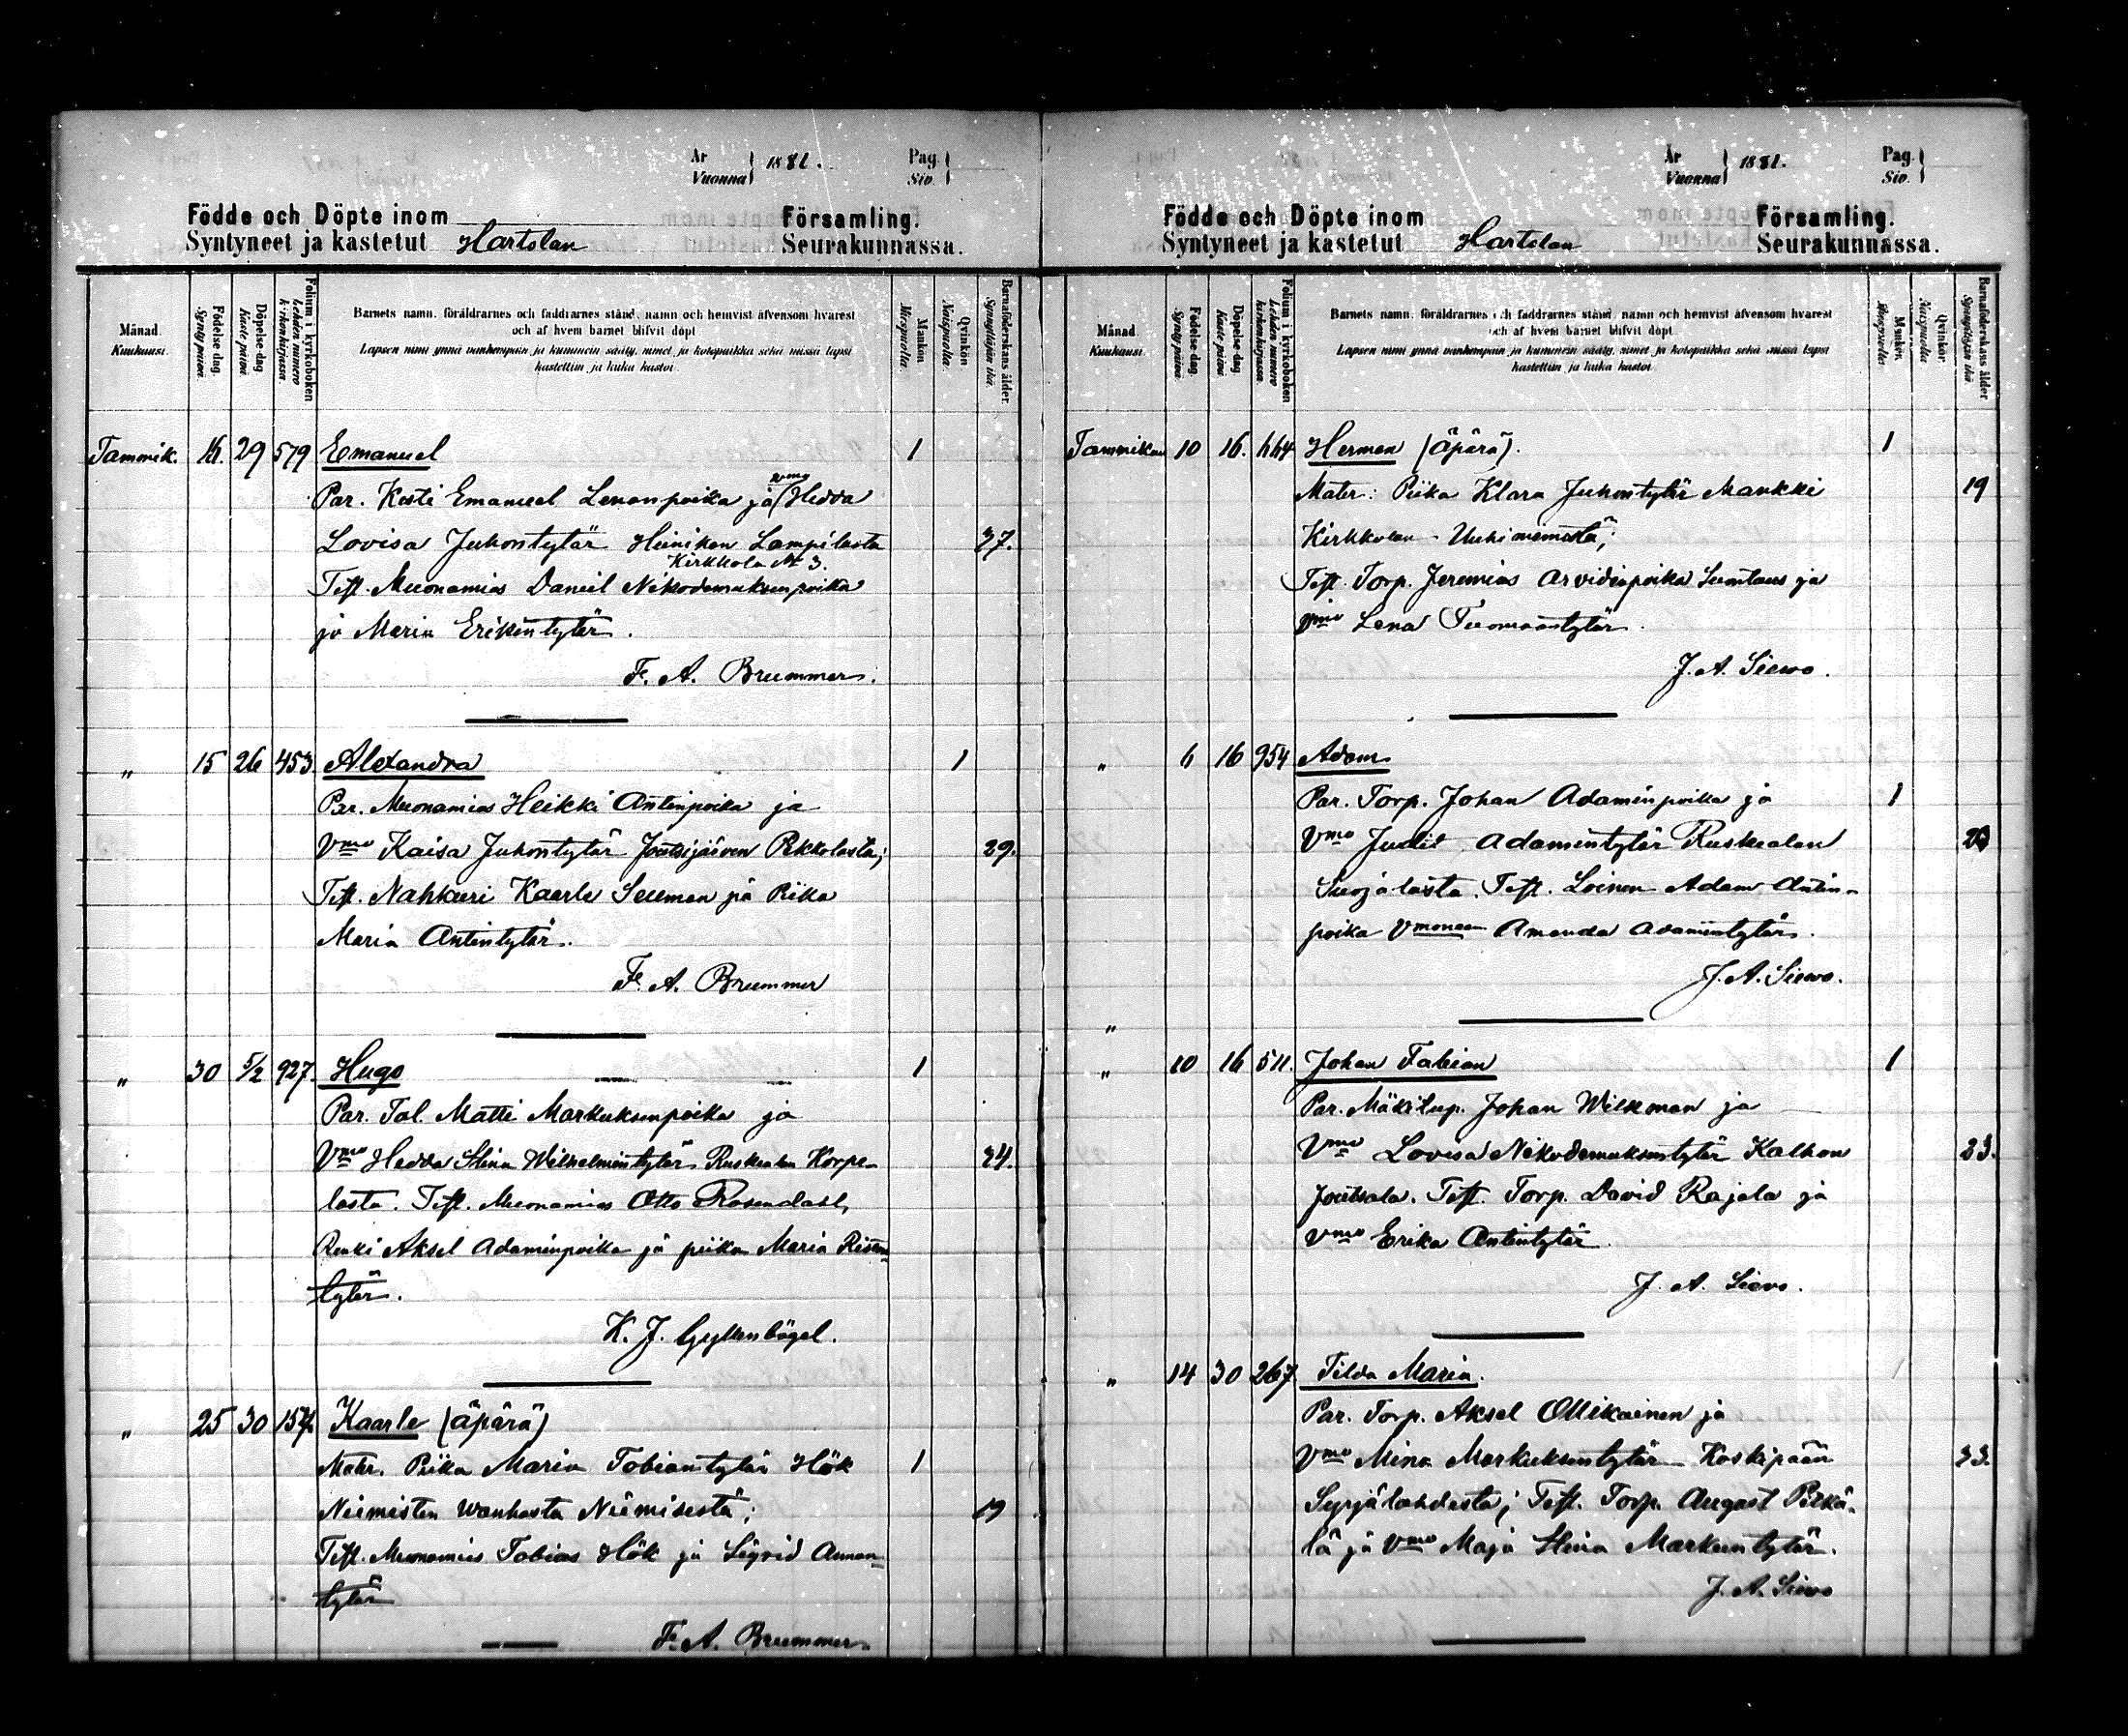 År
Vuonna
1882.
Pag.
Siv.
Födde och Döpte inom
Syntyneet ja kastetut
Hartolan
Församling.
Seurakunnassa.
Månad.
Kuukausi.
Födelse dag.
Synty päivä.
Döpelse-dag
Kaste päivä.
Folium i kyrkoboken
Lehden numero kirkonkirjassa.
Barnets namn, föräldrarnes och faddrarnes stånd, namn och hemvist äfvensom hvarest
och af hvem barnet blifvit döpt.
Lapsen nimi ynnä vanhempain ja kummein sääty, nimet ja kotopaikka sekä missä lapsi
kastettiin ja kuka kastoi.
Mankön
Miespuolta.
Qvinkön
Naispuolta.
Barnaföderskans ålder.
Synnyttäjän ikä.
Tammik. 16. 29 579 Emanuel 1
Par. Kosti Emanuel Lenanpoika ja vmo Hedda
Lovisa Juhontytär Heinikon Lampilasta 37.
Kirkkola № 3.
Test. Muonamies Daniel Nikodemuksenpoika
ja Maria Erikintytär.
F. A. Brummer.
" 15 26 453 Alexandra 1
Par. Muonamies Heikki Antinpoika ja
Vmo Kaisa Juhontytär Joutsijärven Pekkolasta; 29.
Test. Nahkuri Kaarle Seeman ja Piika
Maria Antintytär.
F. A. Brummer
" 30 5/2 927. Hugo 1
Par. Tal. Matti Markuksenpoika ja
Vmo Hedda Stina Wilhelmintytär Ruskealan Korpe- 34.
lasta. Test. Muonamies Otto Rosendahl,
Renki Aksel Adaminpoika ja piika Maria
tytär.
K. J. Gyllenbögel.
" 25 30 157 Kaarle (äpärä)
Mater. Piika Maria Tobiantytär Hök 1
Niemisten Wanhasta Niemisestä; 19
Test. Muonamies Tobias Hök ja Sigrid Annan-
tytär
F. A. Brummer.
År
Vuonna
1882.
Pag.
Siv.
Födde och Döpte inom
Syntyneet ja kastetut
Hartolan
Församling.
Seurakunnassa.
Månad.
Kuukausi.
Födelse dag.
Synty päivä.
Döpelse dag.
Kaste päivä.
Folium i kyrkoboken
Lehden numero kirkonkirjassa.
Barnets namn, föräldrarnes och faddrarnes stånd, namn och hemvist äfvensom hvarest
och af hvem barnet blifvit döpt.
Lapsen nimi ynnä vanhempain ja kummein sääty, nimet ja kotopaikka sekä missä lapsi
kastettiin ja kuka kastoi.
Mankön.
Miespuolta.
Qvinkön.
Naispuolta
Barnaföderskans ålder
Synnyttäjän ikä
Tammikuu 10 16. 664 Herman (äpärä). 1
Mater: Piika Klara Juhontytär Mankki 19
Kirkkolan Uusiniemestä;
Test. Torp. Jeremias Arvidinpoika Suontaus ja
Vmo Lena Tuomaantytär.
J. A. Siewo.
" 6 16 954 Adam
Par. Torp. Johan Adaminpoika ja 1
Vmo Judit Adamintytär Ruskealan
Suojalasta. Test. Loinen Adam Antin-
poika Vmoneen Amanda Adamintytär.
J. A. Siewo.
"
" 10 16 511. Johan Fabian 1
Par. Mäkitup. Johan Wilkman ja
Vmo Lovisa Nikodemuksentytär Kalhon 23.
Joutsala. Test. Torp. David Rajala ja
Vmo Erika Antintytär.
J. A. Siewo.
" 14 30 267 Tilda Maria.
Par. Torp. Aksel Ollikainen ja
Vmo Mina Markuksentytär Koskipään 33.
Syrjälahdesta; Test. Torp. August Pitkä-
lä ja Vmo Maja Stina Markuntytär.
J. A. Siewo